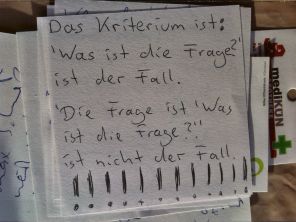 Das Kriterium ist:
'Was ist die Frage?'
ist der Fall.
'Die Frage ist 'Was
ist die Frage?''
ist nicht der Fall.
medikon